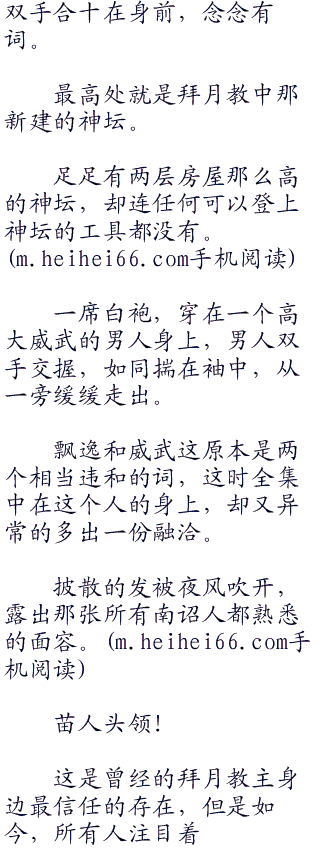 双手合十在身前，念念有
词。
最高处就是拜月教中那
新建的神坛。
足足有两层房屋那么高
的神坛，却连任何可以登上
神坛的工具都没有。
(m.heihei66.com手机阅读)
一席白袍，穿在一个高
大威武的男人身上，男人双
手交握，如同揣在袖中，从
一旁缓缓走出。
飘逸和威武这原本是两
个相当违和的词，这时全集
中在这个人的身上，却又异
常的多出一份融洽。
披散的发被夜风吹开，
露出那张所有南诏人都熟悉
的面容。(m.heihei66.com手
机阅读)
苗人头领！
这是曾经的拜月教主身
边最信任的存在，但是如
今，所有人注目着